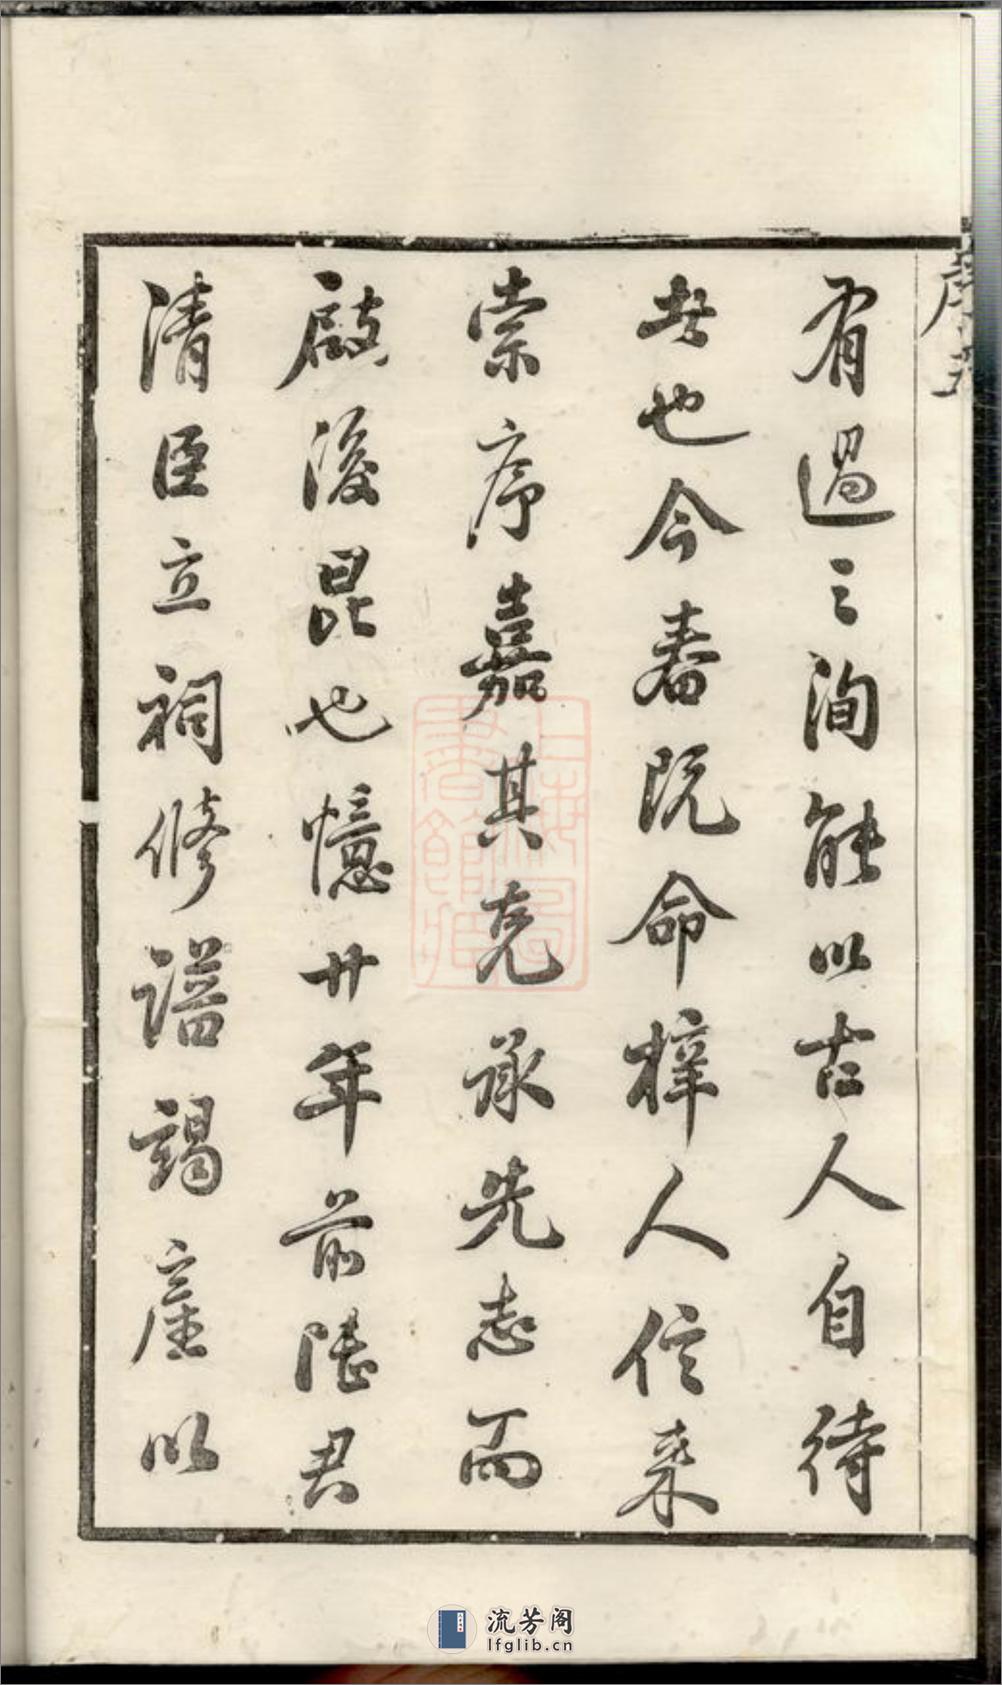 有過之洵能以古人自待
者也今春既命梓人信來
索序嘉其克承先志而
啟後昆也憶廿年前陸君
清臣立祠修譜謁產以
序五
上海圖書館藏
流芳阁
lfglib.cn